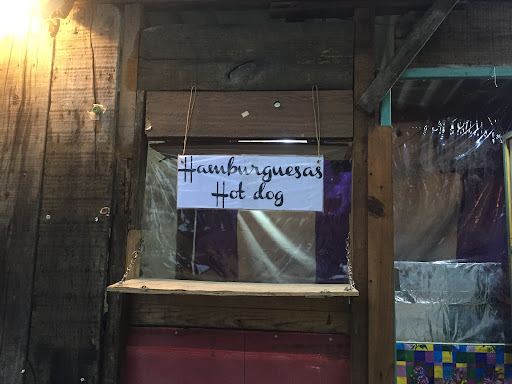 Hamburguesas
Hot dog